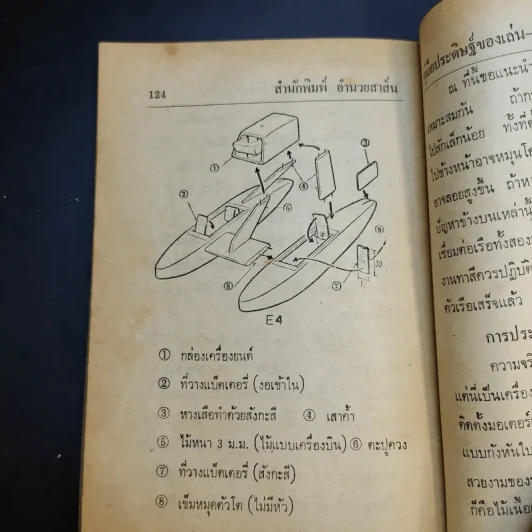 124
สำนักพิมพ์ อำนวยสาส์น
①
②
③
④
⑤
⑥
⑦
⑧
30
E4
① กล่องเครื่องยนต์
② ที่วางแบ็ตเตอรี่ (งอเข้าใน)
③ หางเสือทำด้วยสังกะสี ④ เสาค้ำ
⑤ ไม้หนา 3 ม.ม. (ไม้แบบเครื่องบิน) ⑥ ตะปูควง
⑦ ที่วางแบ็ตเตอรี่ (สังกะสี)
⑧ เข็มหมุดตัวโต (ไม่มีหัว)
ประดิษฐ์ของเล่น–
ณ ที่นี้ขอแนะนำ
เหมาะสมกัน ถ้า
ไปสักเล็กน้อย ทั้งที่
ไปข้างหน้าอาจหมุน
อาจลอยสูงขึ้น ถ้า
ปัญหาข้างบนเหล่านี้
เชื่อมต่อเรือทั้งสอง
งานทาสีควรปฏิบัติ
ตัวเรือเสร็จแล้ว
การประ
ความจร
แต่นี่เป็นเครื่อง
ติดตั้งมอเตอร์
แบบกังหันใบ
สวยงามของ
ก็คือไม้เนื้อ